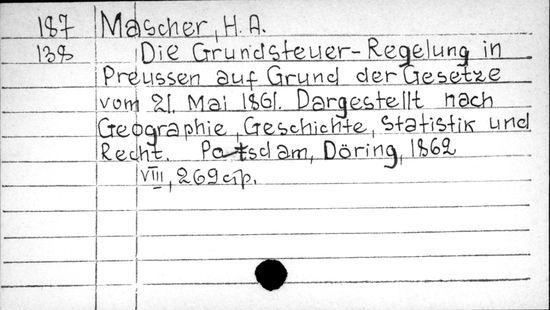 187 Mascher, H. A.
138 Die Grundsteuer-Regelung in
Preussen auf Grund der Gesetze
vom 21. Mai 1861. Dargestellt nach
Geographie, Geschichte, Statistik und
Recht. Potsdam, Döring, 1862
VIII, 269 стр.